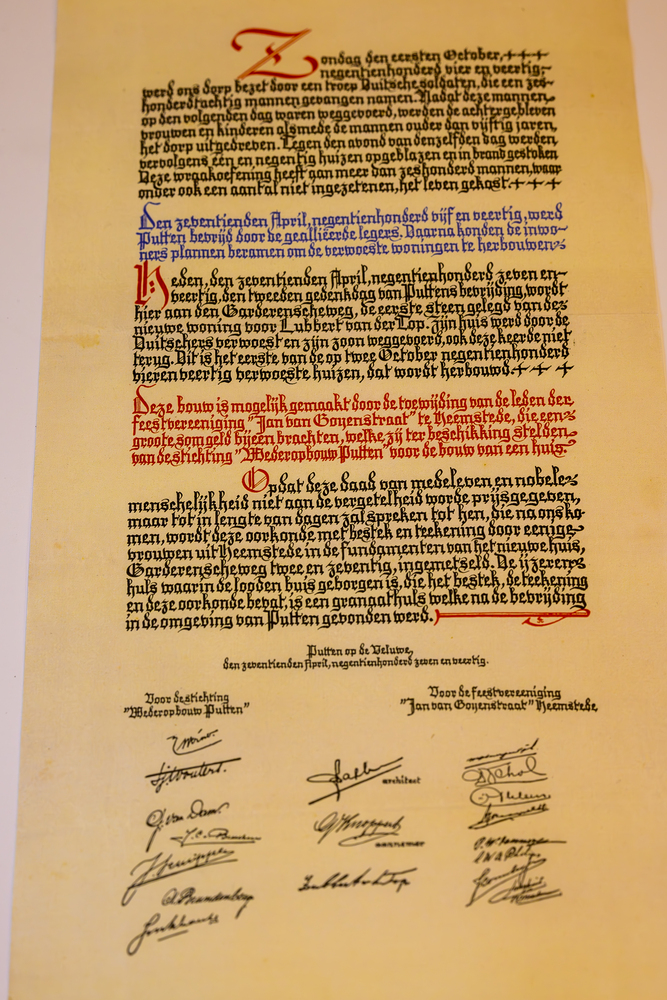 Zondag den eersten October,+++
negentienhonderd vier en veertig,
werd ons dorp bezet door een troep Duitsche soldaten, die een zes-
honderdtachtig mannen gevangen namen. Nadat deze mannen
op den volgenden dag waren weggevoerd, werden de achtergebleven
vrouwen en kinderen alsmede de mannen ouder dan vijftig jaren,
het dorp uitgedreven. Tegen den avond van denzelfden dag werden
vervolgens een en negentig huizen opgeblazen en in brand gestoken
Deze wraakoefening heeft aan meer dan zeshonderd mannen, waar
onder ook een aantal niet ingezetenen, het leven gekost.+++
Den zeventienden April, negentienhonderd vijf en veertig, werd
Putten bevrijd door de geallieerde legers. Daarna konden de inwo-
ners plannen beramen om de verwoeste woningen te herbouwen
Heden, den zeventienden April, negentienhonderd zeven en
veertig, den tweeden gedenkdag van Puttens bevrijding, wordt
hier aan den Garderenscheweg, de eerste steen gelegd van de
nieuwe woning voor Lubbert van der Top. Zijn huis werd door de
Duitschers verwoest en zijn zoon weggevoerd, ook deze keerde niet
terug. Dit is het eerste van de op twee October negentienhonderd
vierenveertig verwoeste huizen, dat wordt herbouwd.+++
Deze bouw is mogelijk gemaakt door de toewijding van de leden der
feestvereeniging "Jan van Goyenstraat" te Heemstede, die een
groote som geld bijeen brachten, welke zij ter beschikking stelden
van de stichting "Wederopbouw Putten" voor de bouw van een huis.
Opdat deze daad van medeleven en nobele
menschelijkheid niet aan de vergetelheid worde prijsgegeven,
maar tot in lengte van dagen zal spreken tot hen, die na ons ko-
men, wordt deze oorkonde met bestek en teekening door eenige
vrouwen uit Heemstede in de fundamenten van het nieuwe huis,
Garderenscheweg twee en zeventig, ingemetseld. De ijzeren
huls waarin de looden buis geborgen is, die het bestek, de teekening
en deze oorkonde bevat, is een granaathuls welke na de bevrijding
in de omgeving van Putten gevonden werd.
Putten op de Veluwe,
den zeventienden April, negentienhonderd zeven en veertig.
Voor de stichting
"Wederopbouw Putten"
Voor de feestvereeniging
"Jan van Goyenstraat" Heemstede.
architect
G. van Dam
G. Knoppert
A. Brandenburg
Lubbert v d Top